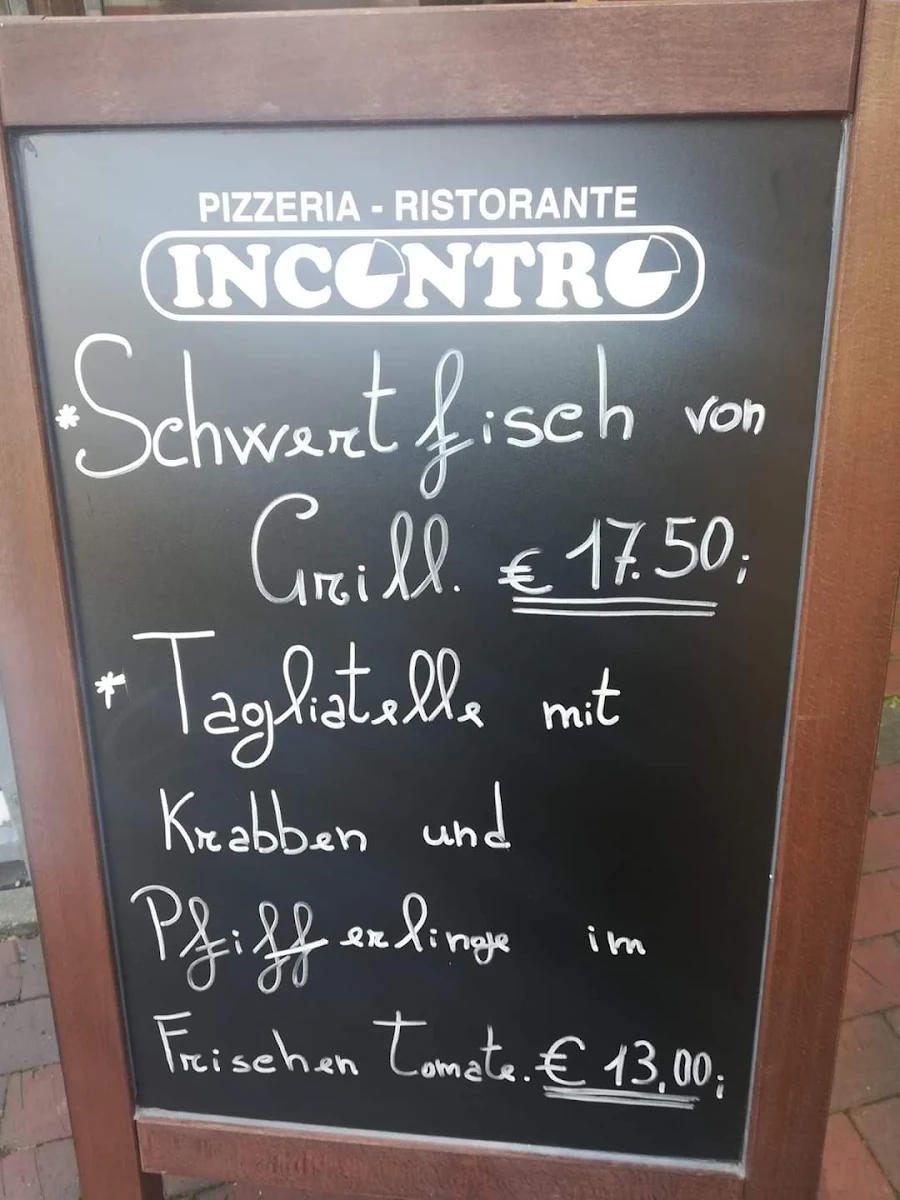 PIZZERIA - RISTORANTE
INCONTRO
*Schwertfisch von
Grill. € 17.50;
* Tagliatelle mit
Krabben und
Pfifferlinge im
Frischen Tomate. € 13,00;